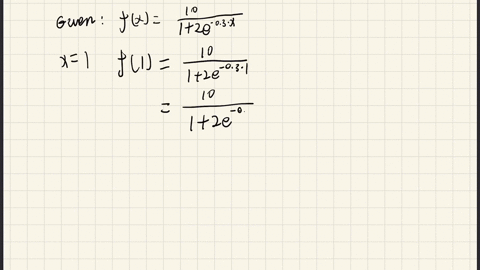 Given: f(x) = 10 / (1+2e^(-0.3·x))
x=1 f(1) = 10 / (1+2e^(-0.3·1))
= 10 / (1+2e^(-0.))